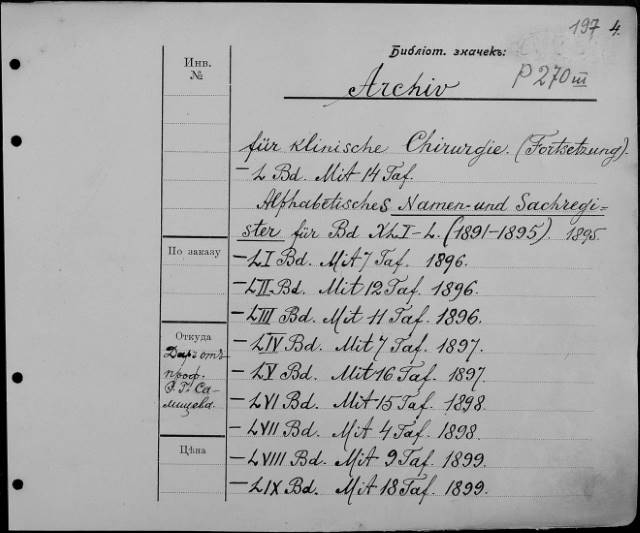 197 4.
Библіот. значекъ:
P 270 III
Archiv
Инв.
№
für klinische Chirurgie. (Fortsetzung).
— L Bd. Mit 14 Taf.
Alphabetisches Namen- und Sachregi-
ster für Bd XLI–L. (1891–1895). 1895.
По заказу
— LI Bd. Mit 7 Taf. 1896.
— LII Bd. Mit 12 Taf. 1896.
— LIII Bd. Mit 11 Taf. 1896.
Откуда
Даръ отъ
проф.
Э. Г. Са-
лищева.
— LIV Bd. Mit 7 Taf. 1897.
— LV Bd. Mit 16 Taf. 1897.
— LVI Bd. Mit 15 Taf. 1898.
— LVII Bd. Mit 4 Taf. 1898.
Цѣна
— LVIII Bd. Mit 9 Taf. 1899.
— LIX Bd. Mit 18 Taf. 1899.